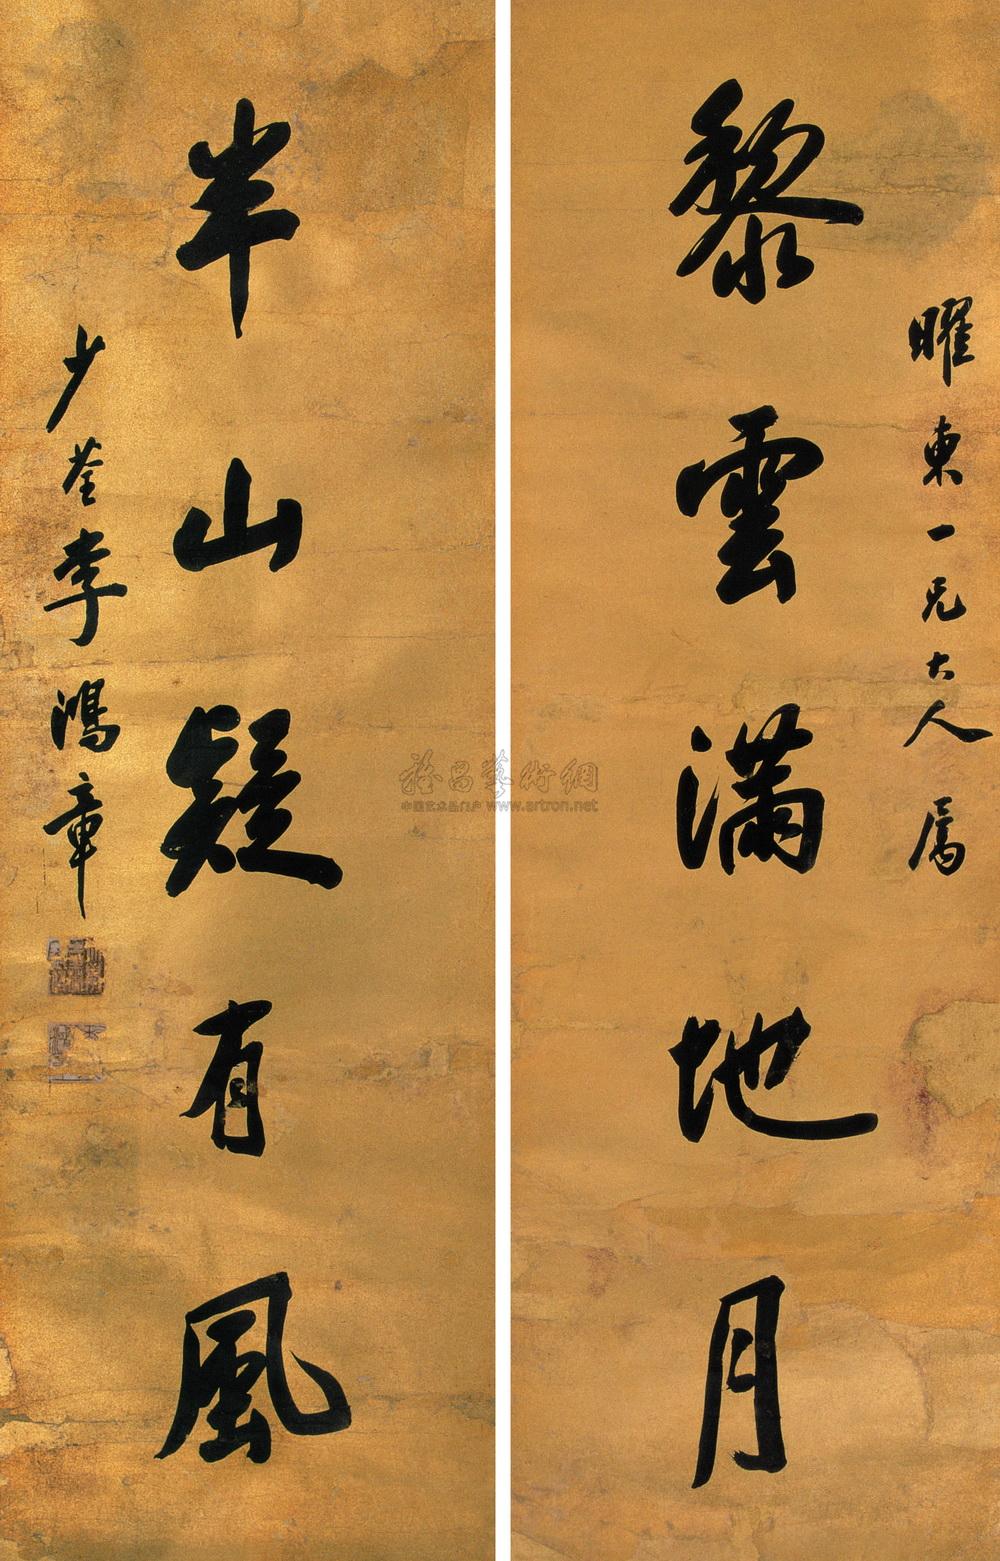 曜東一兄大人属
黎雲滿地月
半山疑有風
少荃李鴻章
雅昌藝術網
中国艺术品门户 www.artron.net